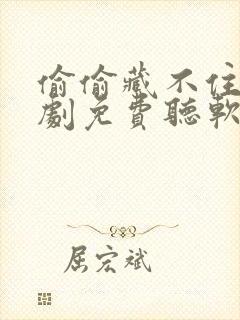 偷偷藏不住
劇免費聽軟
屈宏斌